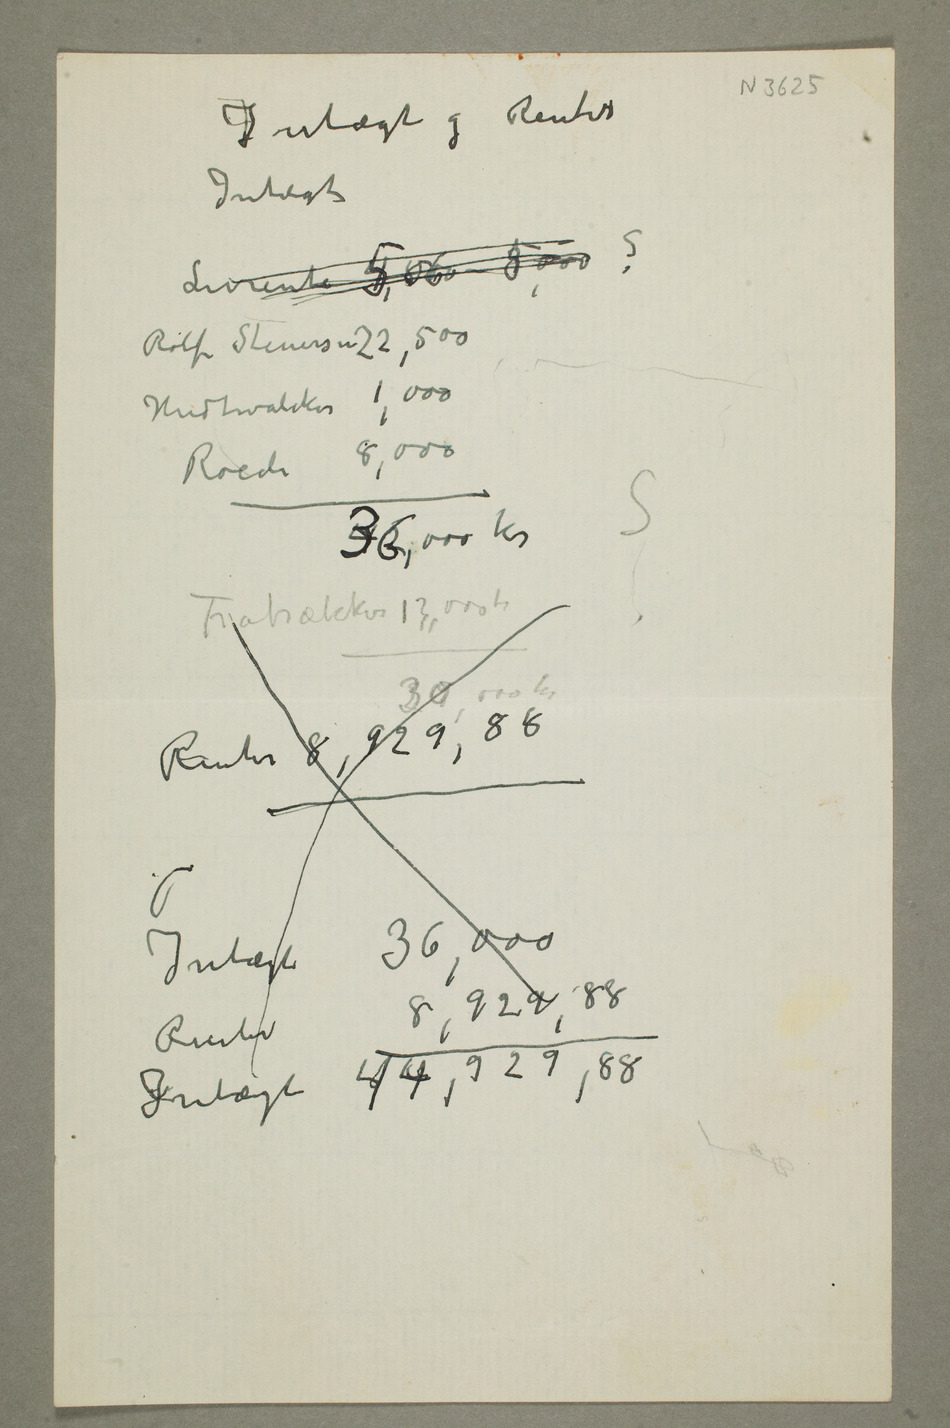 N 3625
Indtægt og Renter
Indtægt
Livrente 5,000 5,000 ?
Rolf Stenersen 22,500
Hudtwalcker 1,000
Roede 8,000
36,000 kr
Fratrækker 13,000 kr
30,000 kr
Renter 8,929,88
Indtægt 36,000
Renter 8,929,88
Indtægt 44,929,88